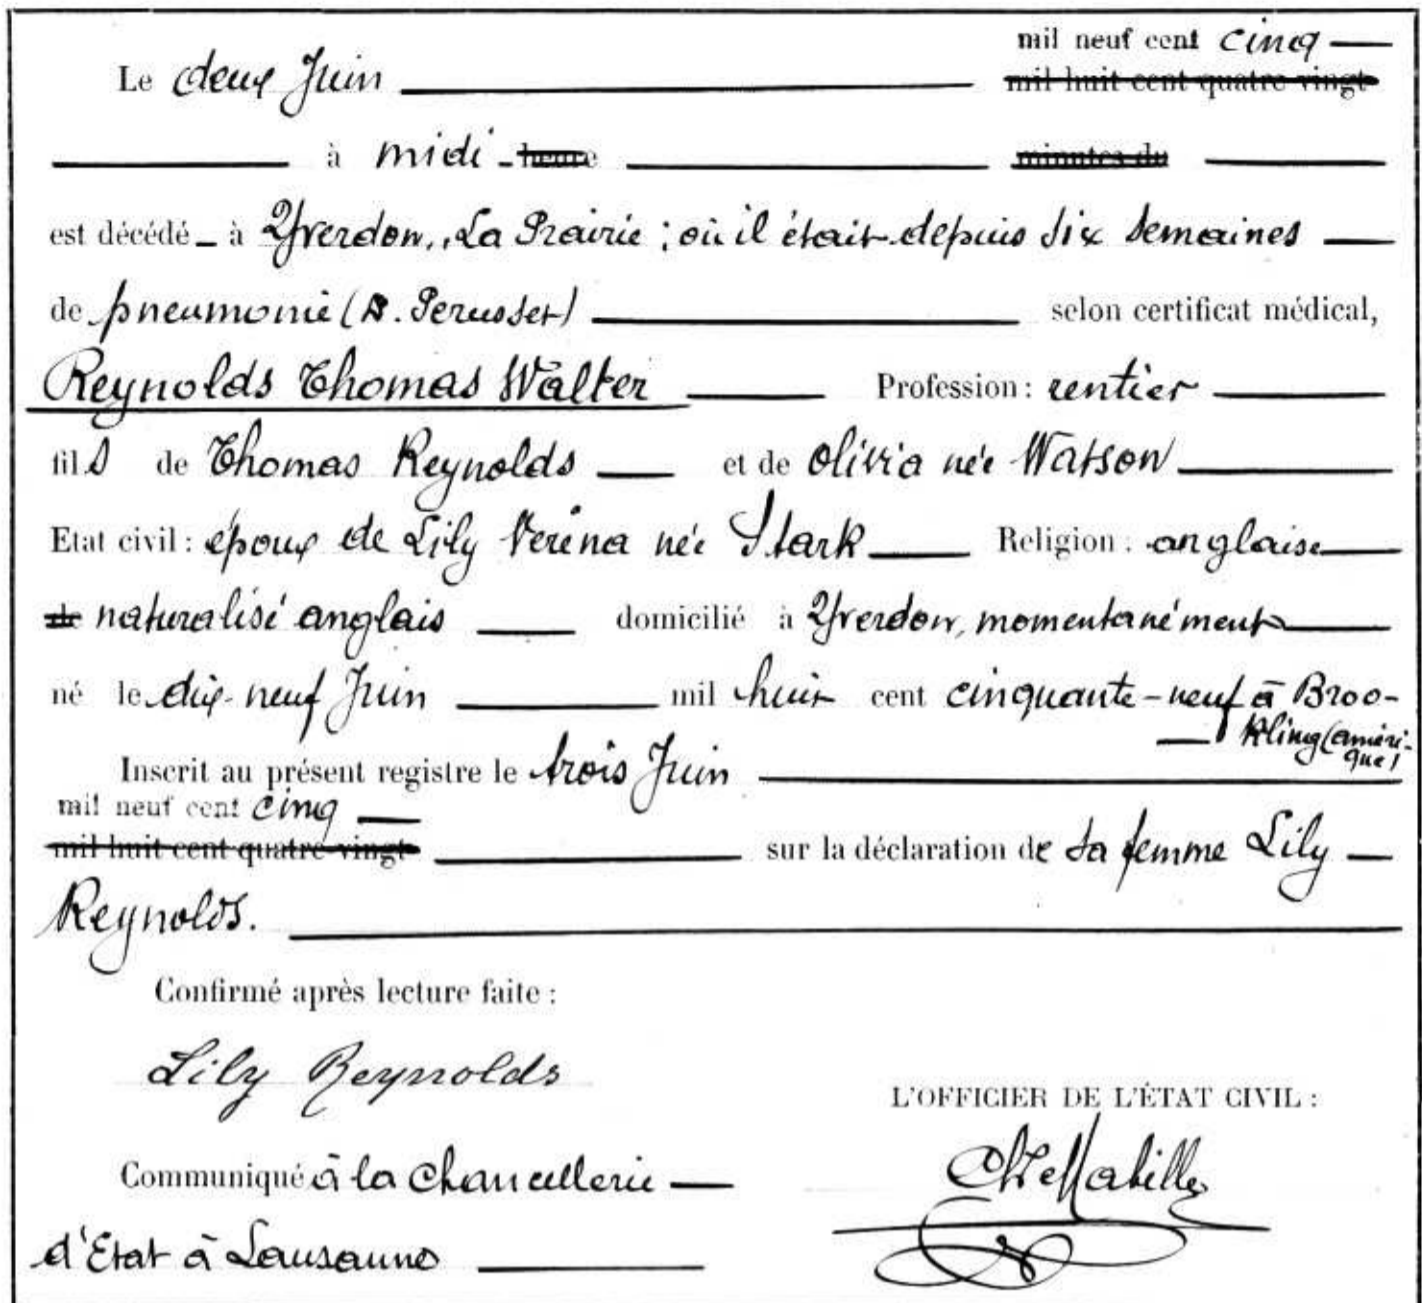 mil neuf cent cinq
Le deux Juin mil huit cent quatre vingt
à midi heure minutes du
est décédé à Yverdon, La Prairie; où il était depuis six semaines
de pneumonie (D. Perusset) selon certificat médical,
Reynolds Thomas Walter Profession: rentier
fils de Thomas Reynolds et de Olivia née Watson
Etat civil: époux de Lily Verena née Stark Religion: anglaise
de naturalisé anglais domicilié à Yverdon, momentanément
né le dix-neuf Juin mil huit cent cinquante-neuf à Broo-
kling (améri-
que)
Inscrit au présent registre le trois Juin
mil neuf cent cinq
mil huit cent quatre vingt sur la déclaration de sa femme Lily
Reynolds.
Confirmé après lecture faite:
Lily Reynolds
L'OFFICIER DE L'ÉTAT CIVIL:
Communiqué à la Chancellerie
d'Etat à Lausanne